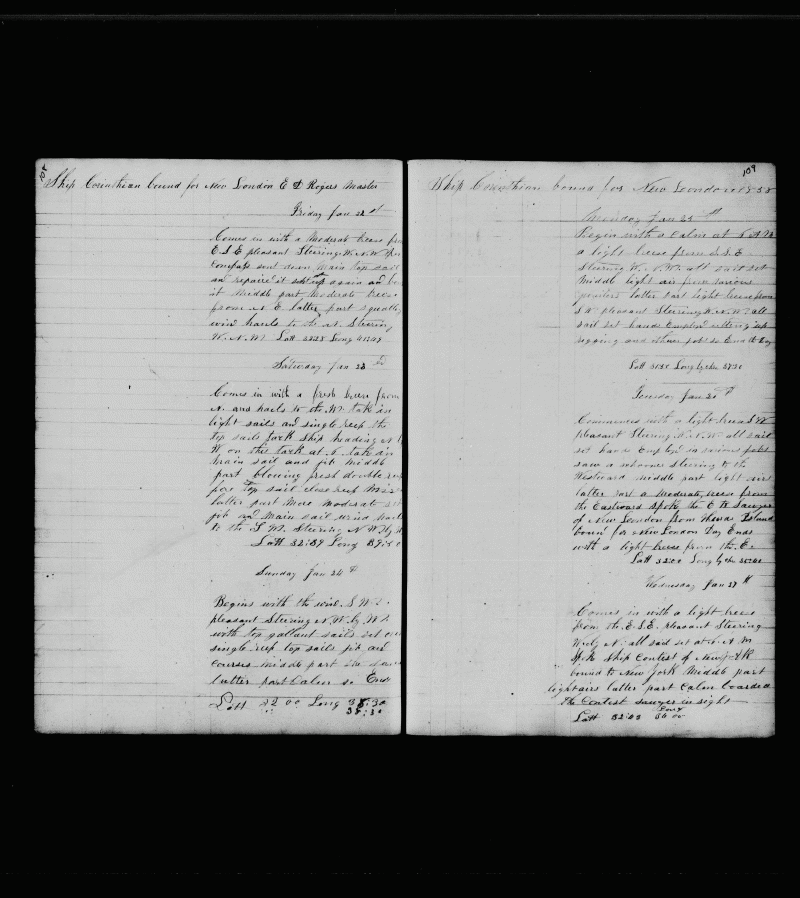 Ship Corinthian bound for New London E D Rogers Master
Friday Jan 22
Comes in with a Moderate breeze
E S E pleasant Steering W. N. W
Compass sent down Main top sail
an repaire it up again an
it Middle part Moderate breeze
from N. E. latter part squally
wind hauls to the Steering
W. N. W Latt Long
Saturday Jan 23
Comes in with a fresh breeze from
N. and hails to the W. take in
light sails an single reep the
top sails tack ship heading N
W on this tack at 6 take in
main sail and jib Middle
part blowing fresh double reep
fore top sail close reep
latter part More Moderate
jib an Main sail wind
to the S W. Steering N W by
Latt 32:39 Long
Sunday Jan 24
Begins with the wind S W
pleasant Steering N. W. by W
with top gallant sails set over
single reep top sails jib and
courses middle part the same
latter part Calm so Ends
Latt 32 00 Long 38:30
38:30
109
Ship Corinthian bound for New London 1858
Monday Jan 25th
Begin with a Calm at 6 A M
a light breeze from E. S. E
Steering W. N. W. all sail set
Middle light air from various
quarters latter part light breeze from
S W pleasant Steering W. N. W all
sail set hands Employ setting up
rigging and other jobs so Ends the Day
Latt Long by chr
Tuesday Jan 26th
Commences with a light breeze S W
pleasant Steering W. N. W all sail
set hands Employ in various jobs
saw a schooner steering to the
Westward middle part light airs
latter part a Moderate breeze from
the Eastward Spoke the E R Sawyer
of New London from Island
bound for New London Day Ends
with a light breeze from the E.
Latt Long by chr
Wednesday Jan 27th
Comes in with a light breeze
from the E. S. E. pleasant Steering
W by N. all sail set at 6 A. M
Spoke Ship Contest of New York
bound to New York Middle part
light airs latter part Calm boarded
the Contest Sawyer in sight
Long
Latt 32:03 36 00